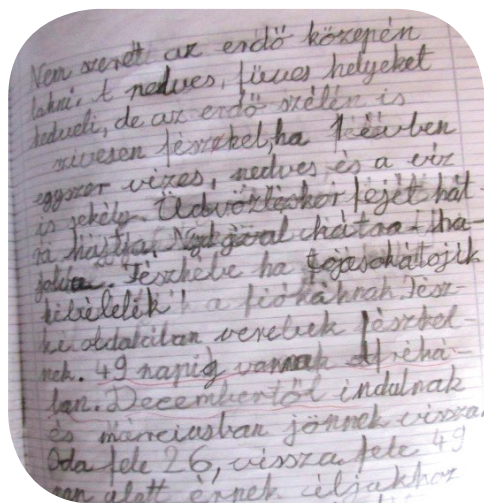 Nem szereti az erdő közepén
lakni. A nedves, füves helyeket
kedveli, de az erdő szélén is
szivesen fészkel, ha 1 évben
egyszer vizes, nedves és a víz
is sekély. Üdvözléskor fejét hát-
ra hajtja,
Fészkébe ha tojásokat ojik
kibélelik a fiókáknak. Fész-
ke oldalában verebek fészkel-
nek. 49 napig vannak Afriká-
ban. Decembertől indulnak
és márciusban jönnek vissza.
Oda fele 26, vissza fele 49
nap alatt érnek céljukhoz